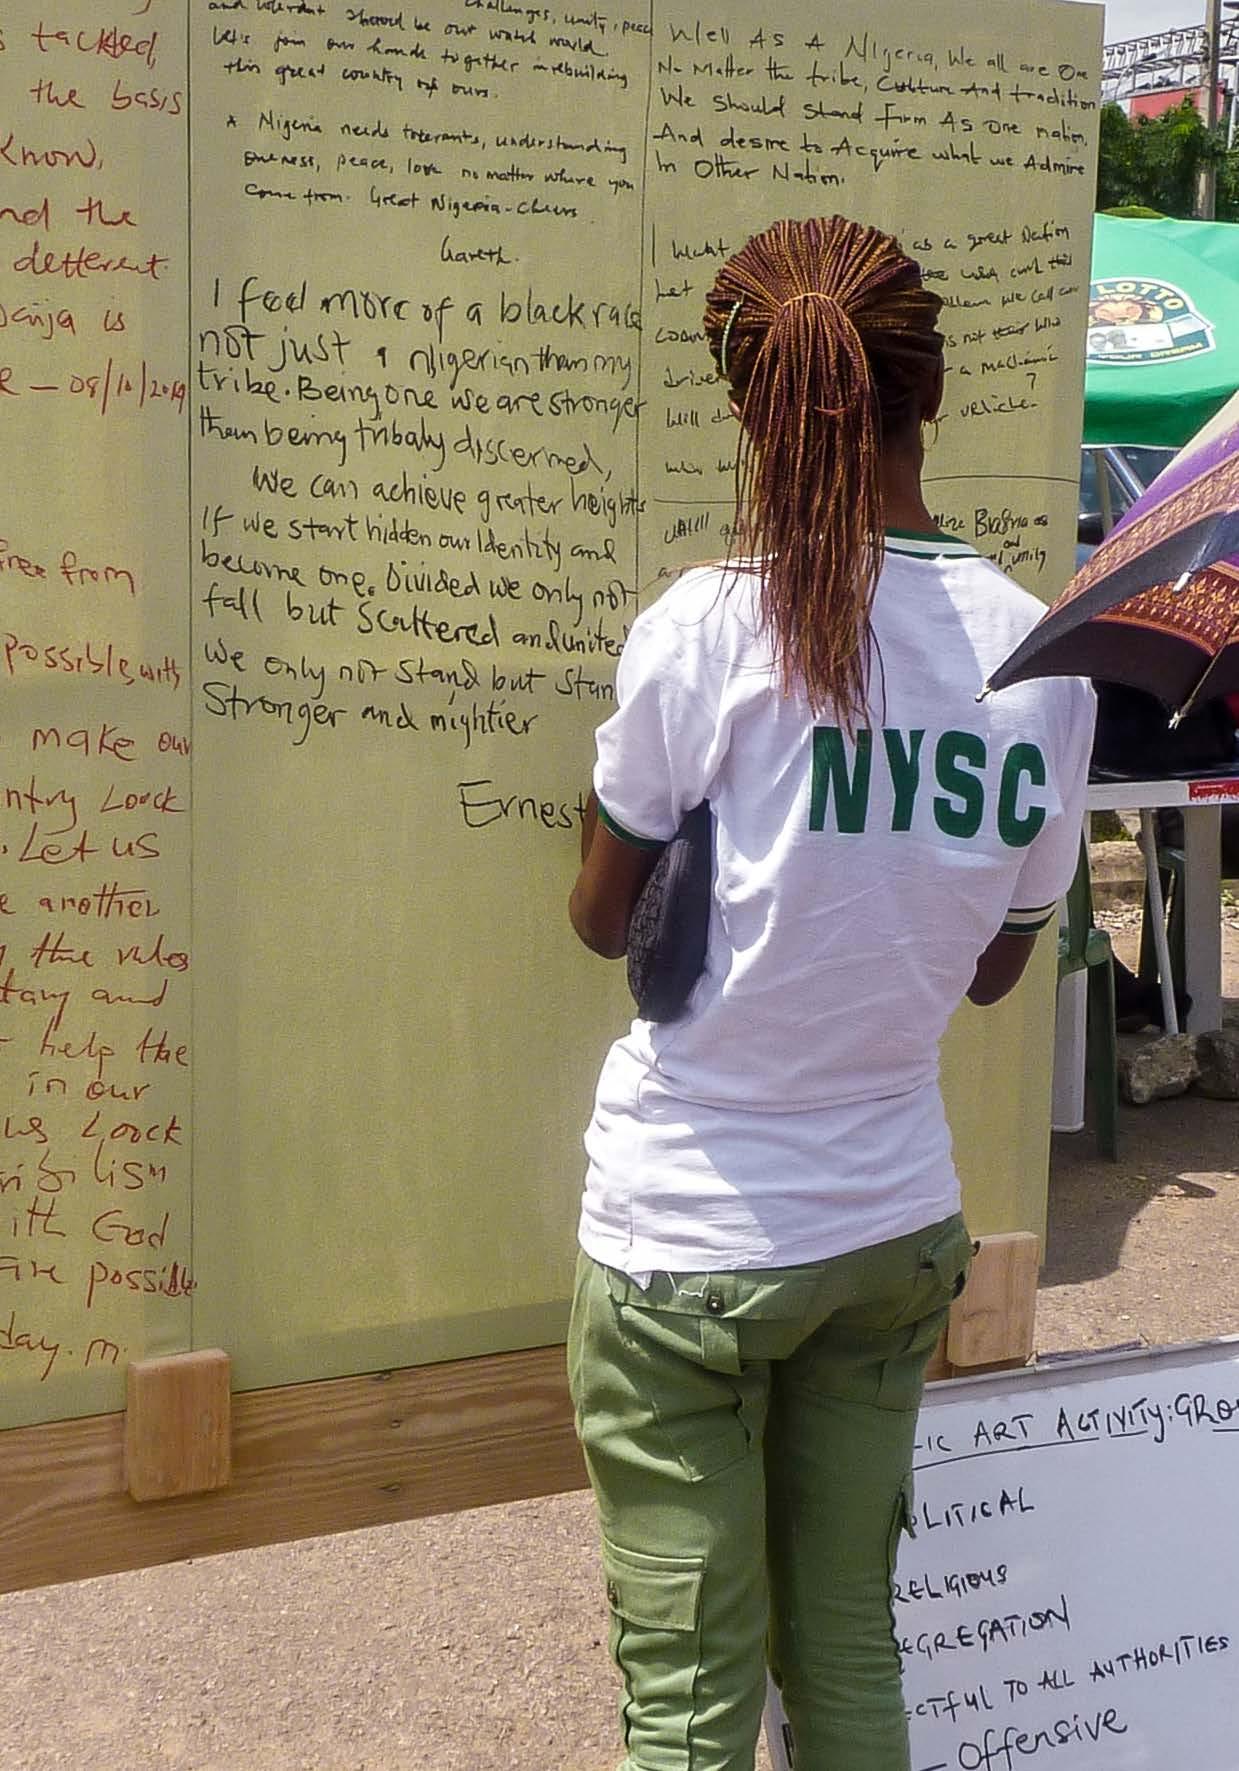 s tackled,
the basis
Know,
nd the
detterent.
Danja is
e - 08/10/2019
free from
possible, with
make our
ntry Loock
. Let us
e another
the rules
tary and
help the
in our
us Loock
ith God
are possible
day. m.
challenges, unity, peace
and tolerant should be our watch world.
let's join our hands together in rebuilding
this great country of ours.
* Nigeria needs tolerants, understanding
oneness, peace, love no matter where you
Come from. Great Nigeria - cheers.
Gareth.
I feel more of a black race
not just a Nigerian than my
tribe. Being one we are stronger
than being tribaly discerned,
We can achieve greater heights
If we start hidden our Identity and
become one. Divided we only not
fall but Scattered and united
we only not Stand but Stan
Stronger and mightier
Ernest
Well As A Nigeria, We all are One
No Matter the tribe, Culture And tradition
We should stand firm As one nation,
And desire to Acquire what we Admire
In Other Nation.
I want as a great Nation
Let who
we call our
is not who
drive a machanic
?
will vehicle.
Biafra as
and
unity
LOTTO
YOUR DREAM
NYSC
IC ART ACTIVITY: GRO
OLITICAL
RELIGIOUS
EGREGATION
ECTFUL TO ALL AUTHORITIES
- Offensive